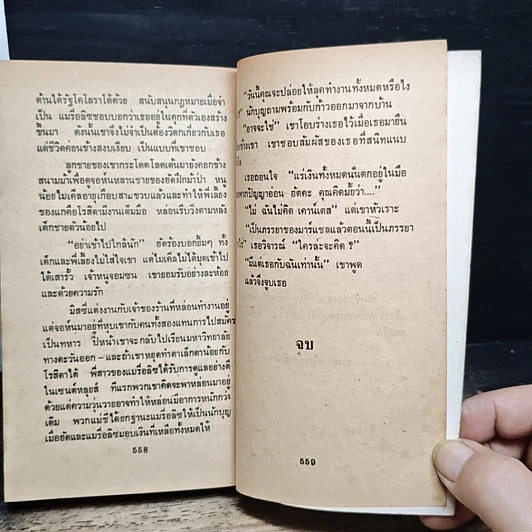 ด้านใต้รัฐโคโลราโด้ด้วย สนับสนุนกฎหมายเมื่อจำ
เป็น แมรี่อลิซชอบบอกว่าเธออยู่ในคุกที่ตัวเองสร้าง
ขึ้นมา ดังนั้นเขาจึงไม่จำเป็นต้องวิตกเกี่ยวกับเธอ
แต่ชีวิตค่อนข้างสงบเงียบ เป็นแบบที่เขาชอบ
ลูกชายของเขากระโดดโลดเต้นมายังคอกข้าง
สนามม้าเพื่อดูจอห์นหลานชายของฮัดฝึกม้าป่า หนู
น้อยไมเคิลอายุเกือบสามขวบแล้วและทำให้พี่เลี้ยง
ของแกคือโรสิตามีงานเต็มมือ หล่อนรีบวิ่งตามหลัง
เด็กชายตัวน้อยไป
"อย่าเข้าไปใกล้นัก" ฮัดร้องบอกยิ้มๆ ทั้ง
เด็กและพี่เลี้ยงไม่ใส่ใจเขา แต่ไมเคิลได้มุดเข้าไป
ใต้เสารั้ว เจ้าหนูจอมซน เขายอมรับอย่างละห้อย
และด้วยความรัก
มิสซี่แต่งงานกับเจ้าของร้านที่หล่อนทำงานอยู่
แต่จอห์นมาอยู่ที่พบเขากับคนทั้งสองแทนการไปสมัคร
เป็นทหาร ปีหน้าเขาจะกลับไปเรียนมหาวิทยาลัย
ทางตะวันออก—และถ้าเขาหยุดทำตาเล็กตาน้อยกับ
โรสิตาได้ พี่สาวของแมรี่อลิซได้รับการดูแลอย่างดี
ในเซนต์หลุยส์ ทีแรกพวกเขาคิดจะพาหล่อนมาอยู่
ด้วยแต่ความวุ่นวายอาจทำให้หล่อนมีอาการหนักกว่า
เดิม พวกแม่ชีได้ยกฐานะแมรี่อลิซให้เป็นนักบุญ
เมื่อฮัดและแมรี่อลิซมอบเงินที่เหลือทั้งหมดให้
๕๕๘
"วันนี้คุณจะปล่อยให้ลุคทำงานทั้งหมดหรือไง
นักบุญถามพร้อมกับก้าวออกมาจากบ้าน
"อาจจะใช่" เขาโอบร่างเธอไว้เมื่อเธอมายืน
ข้างเขา เขาชอบสัมผัสของเธอที่สนิทแนบ
เธอถอนใจ "แร่เงินทั้งหมดนั่นตกอยู่ในมือ
พวกปัญญาอ่อน ฮัดคะ คุณคิดมั้ยว่า...."
"ไม่ ฉันไม่คิด เคาน์เตส" แต่เขาหัวเราะ
"เป็นภรรยาของมาร์แชลแล้วตอนนี้เป็นภรรยา
ไร่" เธอวิจารณ์ "ใครล่ะจะคิด ?"
"มีแต่เธอกับฉันเท่านั้น" เขาพูด
แล้วจึงจูบเธอ
จบ
๕๕๙